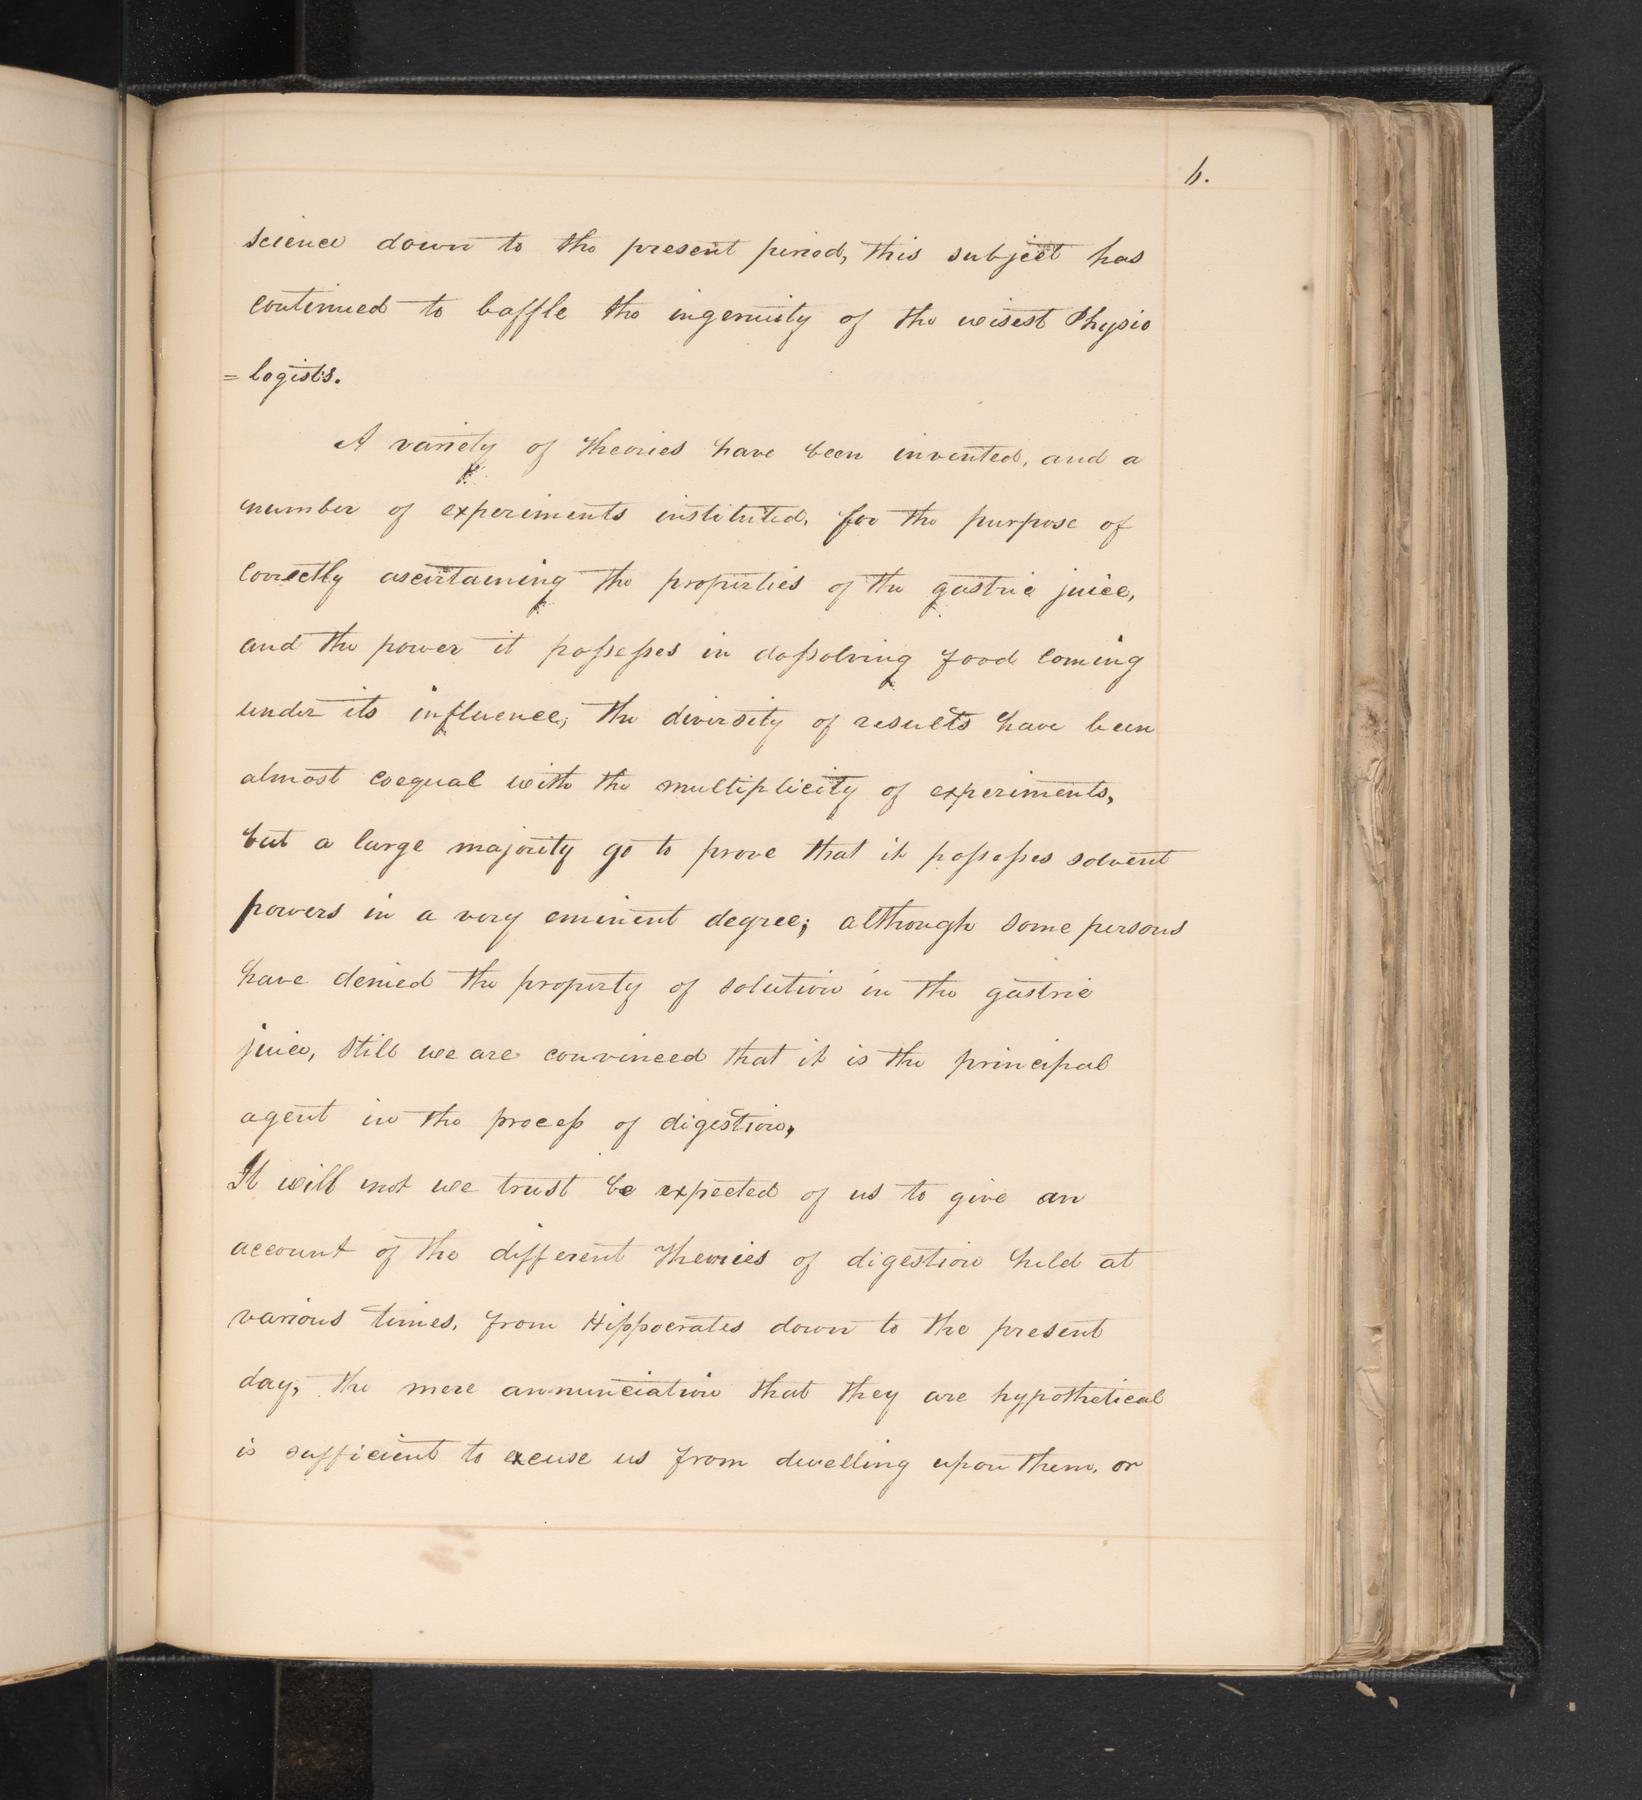 6.
science down to the present period, this subject has
continued to baffle the ingenuity of the wisest Physio
=logists.
A variety of theories have been invented, and a
number of experiments instituted, for the purpose of
correctly ascertaining the properties of the gastric juice,
and the power it possesses in dossolving food coming
under its influence, the diversity of results have been
almost coequal with the multiplicity of experiments,
but a large majority go to prove that it possesses solvent
powers in a very eminent degree; although some persons
have denied the property of solution in the gastric
juice, still we are convinced that it is the principal
agent in the process of digestion,
It will not we trust be expected of us to give an
account of the different theories of digestion held at
various times, from Hippocrates down to the present
day, the mere annunciation that they are hypothetical
is sufficient to excuse us from dwelling upon them, or